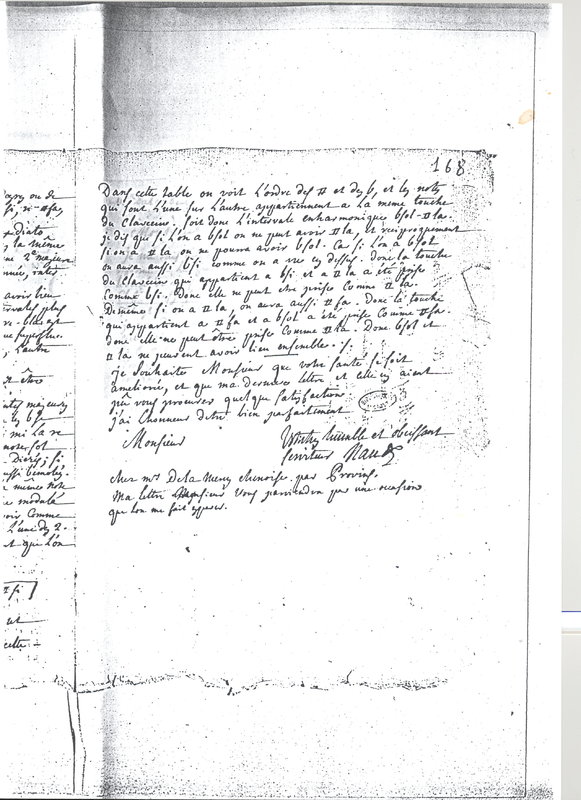 168
Dans cette table on voit L'ordre des # et des b, et les notes
qui sont L'une sur L'autre appartiennent a La meme touche
du Clavecin. soit donc L'intervale enharmonique bsol-#la.
je dis que si L'on a bsol on ne peut avoir #la, et reciproquement
si on a #la on ne pourra avoir bsol. Car si L'on a bsol
on aura aussi bsi comme on a vu cy dessus. donc la touche
du Clavecin qui appartient a bsi et a #la a été prise
comme bsi. Donc elle ne peut etre prise comme #la.
Demême si on a #la, on aura aussi #fa. Donc la touche
qui appartient a #fa et a bsol a été prise comme #fa.
donc elle ne peut être prise comme
Donc bsol et
#la ne peuvent avoir lieu ensemble.
je souhaite Monsieur que votre santé se soit
ameliorée, et que ma derniere lettre et celle cy aient
pû vous procurer quelque satisfaction
j'ai L'honneur d'etre bien parfaitement
Monsieur
Votre humble et obeissant
serviteur
chez mr De la
par Provins.
Ma lettre Monsieur vous parviendra par une occasion
que L'on me fait
ou de
si, si-#fa,
diato
la même
2e majeure
avoir lieu
plus
L'autre
être
majeurs
les b
mi la re
sol
Diezés, si
aussi bemolés.
même note
modale
voir comme
L'une des 2.
et que L'on
#fi
ut
cette